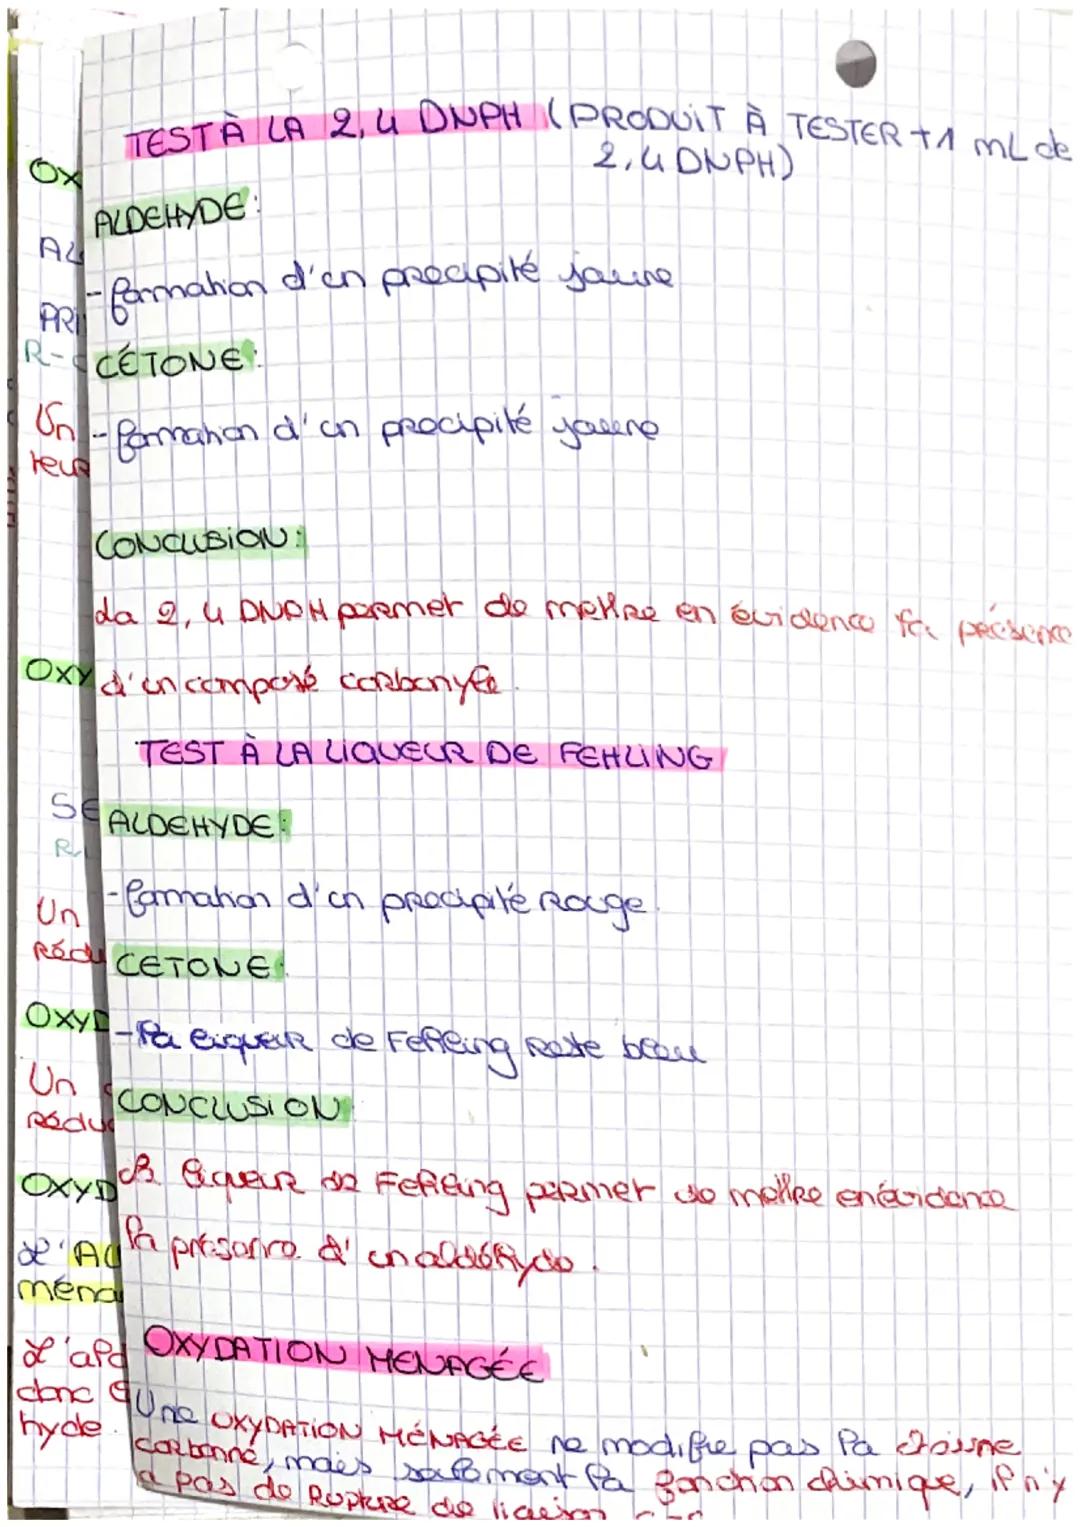 TEST À LA 2,4 DNPH (PRODUIT À TESTER + 1 mL de
2,4 DNPH)
ALDEHYDE:
- formation d'un precipité jaune
CÉTONE:
- formation d'un precipité jaune
CONCLUSION:
La 2,4 DNPH permet de mettre en évidence la présence
d'un composé carbonyle.
TEST À LA LIQUEUR DE FEHLING
ALDEHYDE:
- formation d'un precipité Rouge.
CETONE:
- la liqueur de Fehling Reste bleu
CONCLUSION:
La liqueur de Fehling permet de mettre en évidence
la présence d'un aldéhyde.
OXYDATION MENAGÉE
Une OXYDATION MÉNAGÉE ne modifie pas la chaine
carbonné, mais seulement la fonction chimique, il n'y
a pas de Rupture de liaison
OX
AL
PRI
R-
Un
teur
OXY
SE
R
Un
Rédu
OXYD
Un
Réduc
OXYD
L'AL
ména
L'ald
donc
hyde.